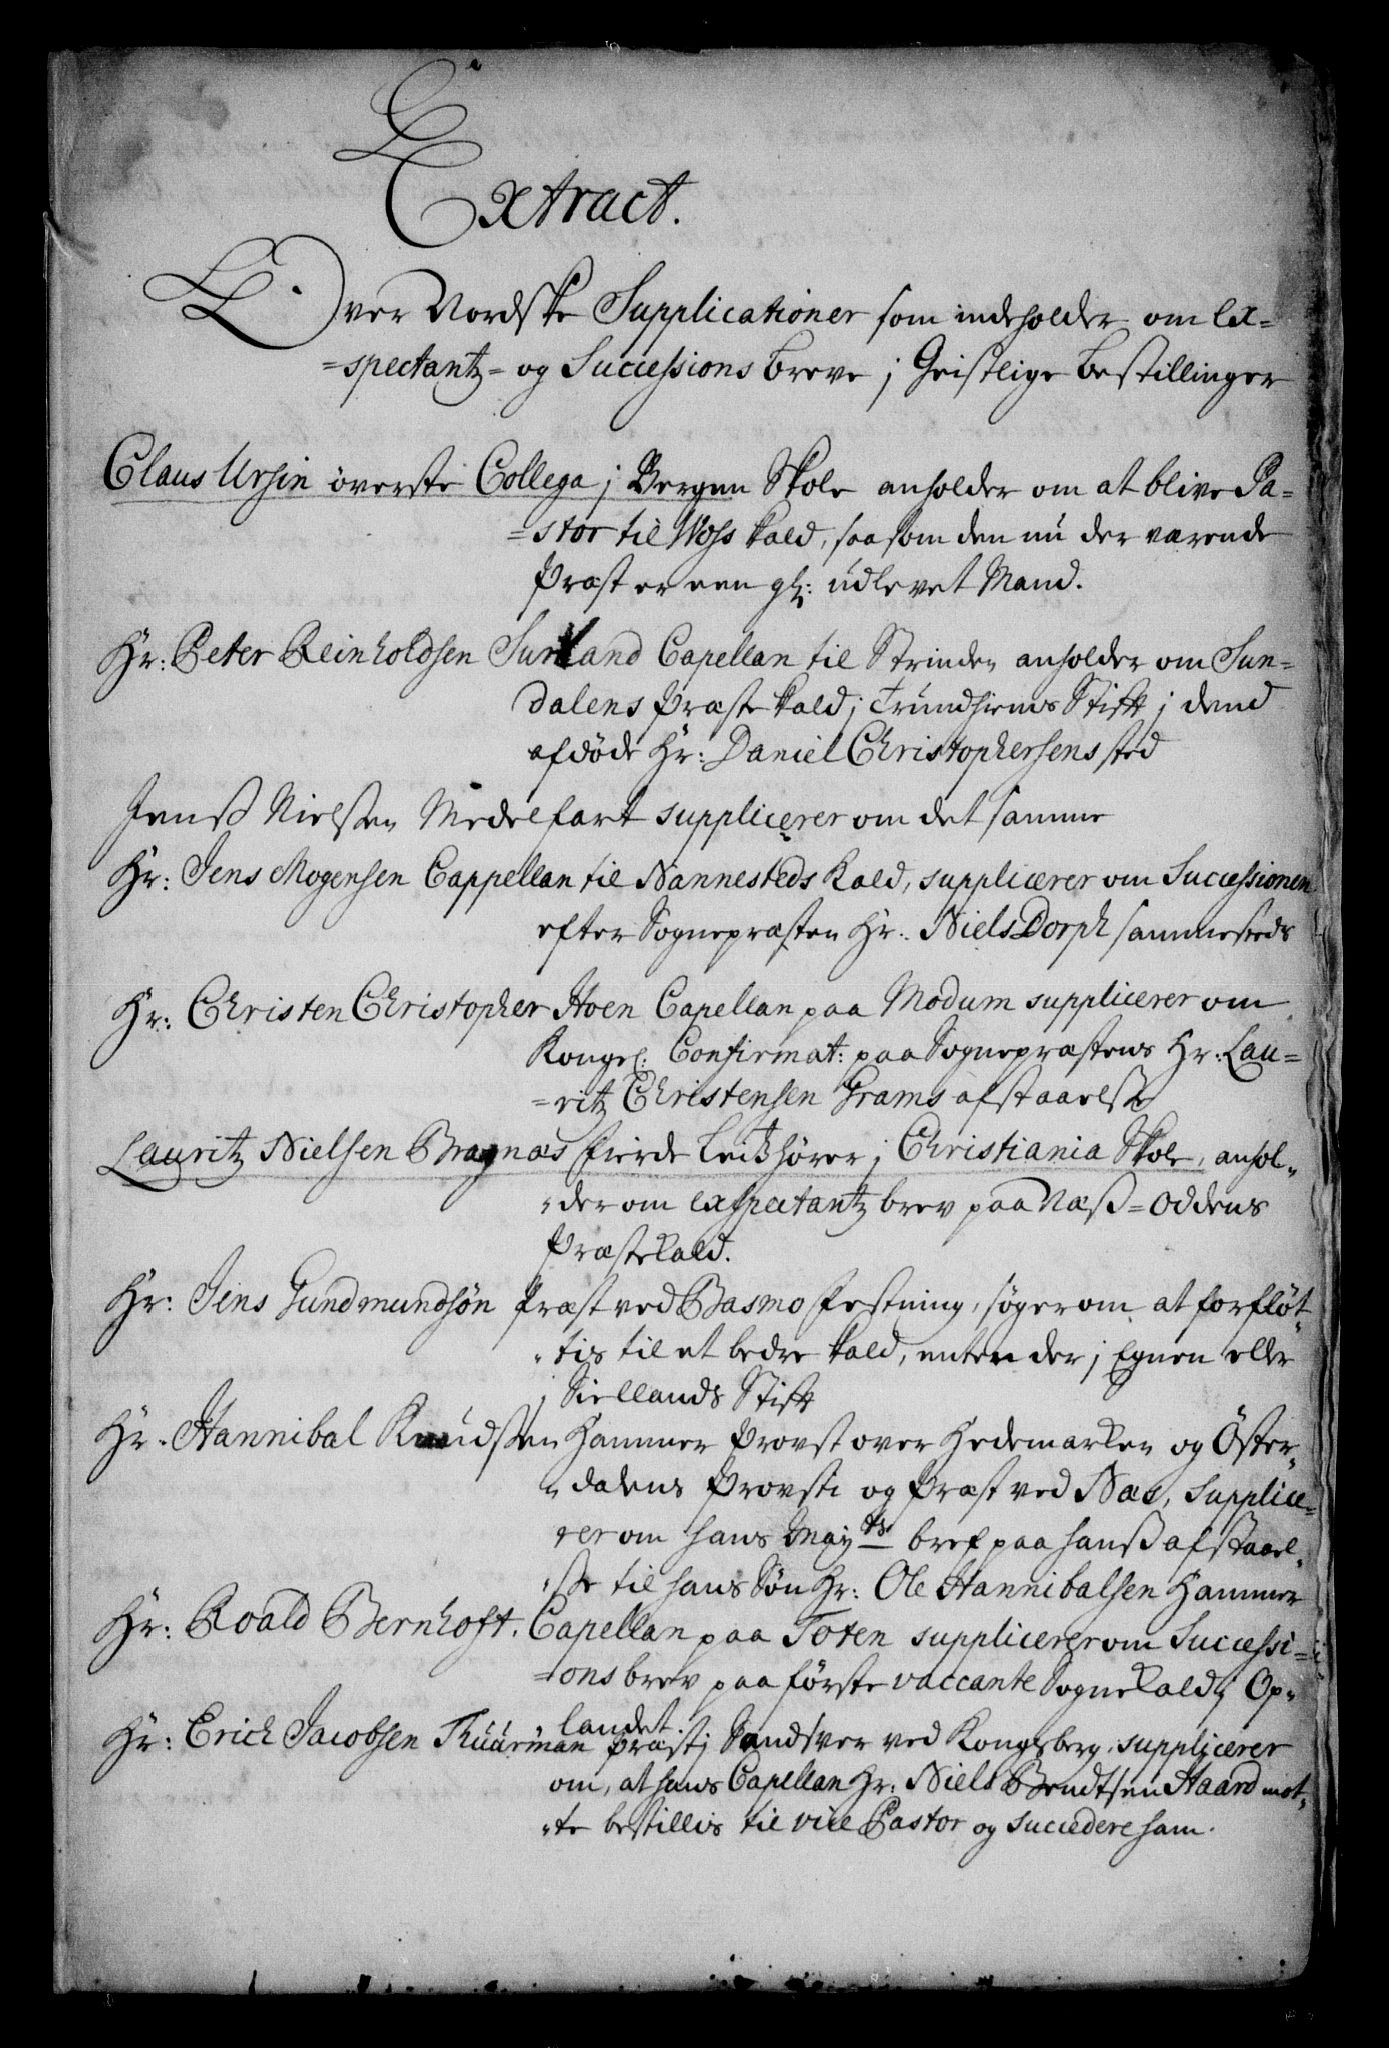 Extract.
Over Nordske Supplicationer som indeholder om Ex=
=spectantz= og Successions breve j Geistlige bestillinger
Claus Ursin överste Collega j Bergen Skole anholder om at blive Pa=
=stor til Woss kald, saasom den nu der værende
Præst er een gl: udlevet Mand.
Hr: Peter Reinholdsen Surland Capellan til Strinden anholder om Sun=
dalens Præstekald j Trundhiems Stift j dend
afdöde Hr: Daniel Christophersens sted
Jenss Nielssen Medelfart supplicerer om det samme
Hr: Jens Mogensen Cappellan til Nannesteds Kald, supplicerer om Successionen
efter Sognepræsten Hr: Niels Dorph sammesteds
Hr: Christen Christopher Hoen Capellan paa Modum supplicerer om
Kongel: Confirmat: paa Sognepræstens Hr: Lau=
=ritz Christensen Grams afstaaelsse
Lauritz Nielsen Bragnæs fierde Lectiehører j Christiania Skole, anhol=
=der om exspectantz brev paa Næss=Oddens
Præstekald.
Hr: Jens Gundmundsön Præst ved Basmo Festning, søger om at forflöt=
=tis til et bedre kald, enten der j Egnen eller
j Siellands Stift
Hr. Hannibal Knudssen Hammer Provst over Hedemarken og Öster=
=dalens Provsti og Præst ved Næs, supplice=
=rer om hans Mayts bref paa hanss afstaael=
=sse til hans Søn Hr: Ole Hannibalsen Hammer
Hr: Roald Bernhoft. Capellan paa Toten supplicerer om Successi=
=ons brev paa förste vaccante Sognekald j Op=
=landet.
Hr: Erich Jacobsen Thuurman Præst j Sandsver ved Kongsberg, supplicerer
om, at hans Capellan Hr: Niels Bendtsen Haard mot=
=te bestillis til vice Pastor og succedere ham.